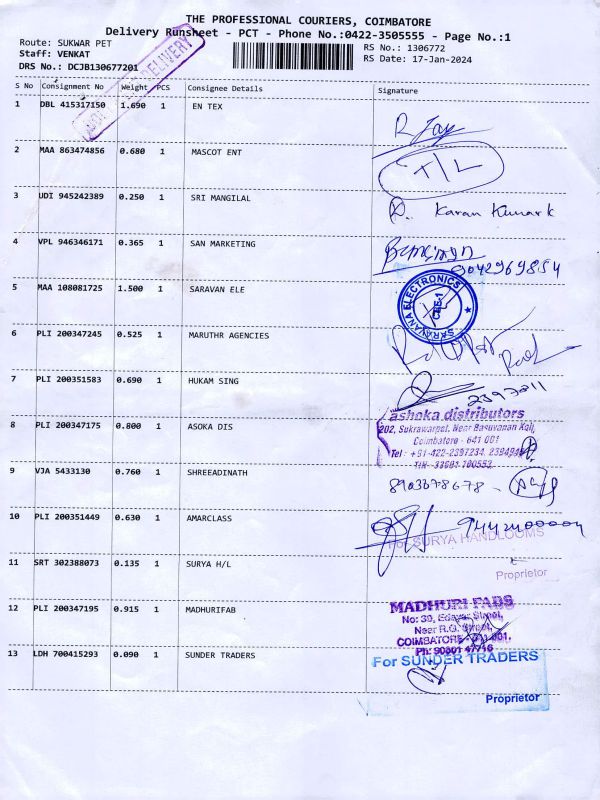 THE PROFESSIONAL COURIERS, COIMBATORE
Delivery Runsheet - PCT - Phone No.:0422-3505555 - Page No.:1
Route: SUKWAR PET
RS No.: 1306772
Staff: VENKAT
RS Date: 17-Jan-2024
DRS No.: DCJB130677201
DELIVERY
S No Consignment No Weight PCS Consignee Details Signature
1 DBL 415317150 1.690 1 EN TEX
R Jay
2 MAA 863474856 0.680 1 MASCOT ENT
T/L
3 UDI 945242389 0.250 1 SRI MANGILAL
Karan Kumar k
4 VPL 946346171 0.365 1 SAN MARKETING
9042969854
5 MAA 108081725 1.500 1 SARAVAN ELE
SARAVANA ELECTRONICS
CBE-1
6 PLI 200347245 0.525 1 MARUTHR AGENCIES
7 PLI 200351583 0.690 1 HUKAM SING
2397811
8 PLI 200347175 0.800 1 ASOKA DIS
ashoka distributors
202, Sukrawarpet, Near Basuvanan Koil,
Coimbatore - 641 001
Tel : +91-422-2397234,
9 VJA 5433130 0.760 1 SHREEADINATH
8903678678
10 PLI 200351449 0.630 1 AMARCLASS
For SURYA HANDLOOMS
11 SRT 302388073 0.135 1 SURYA H/L
Proprietor
12 PLI 200347195 0.915 1 MADHURIFAB
MADHURI FABS
No: 39, Edayar Street,
Near R.G. Street,
COIMBATORE - 641 001.
Ph: 90801 47716
13 LDH 700415293 0.090 1 SUNDER TRADERS
For SUNDER TRADERS
Proprietor